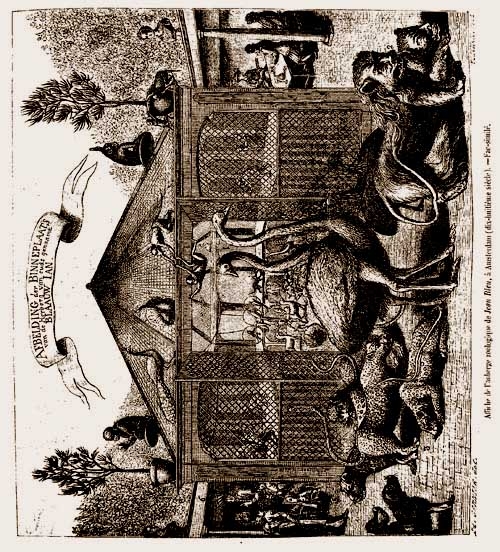 AFBEELDING der BINNEPLAATS
van de
BLAAUW JAN
Affiche de l'auberge zoologique de Jean Bleu, à Amsterdam (dix-huitième siècle). — Fac-similé.